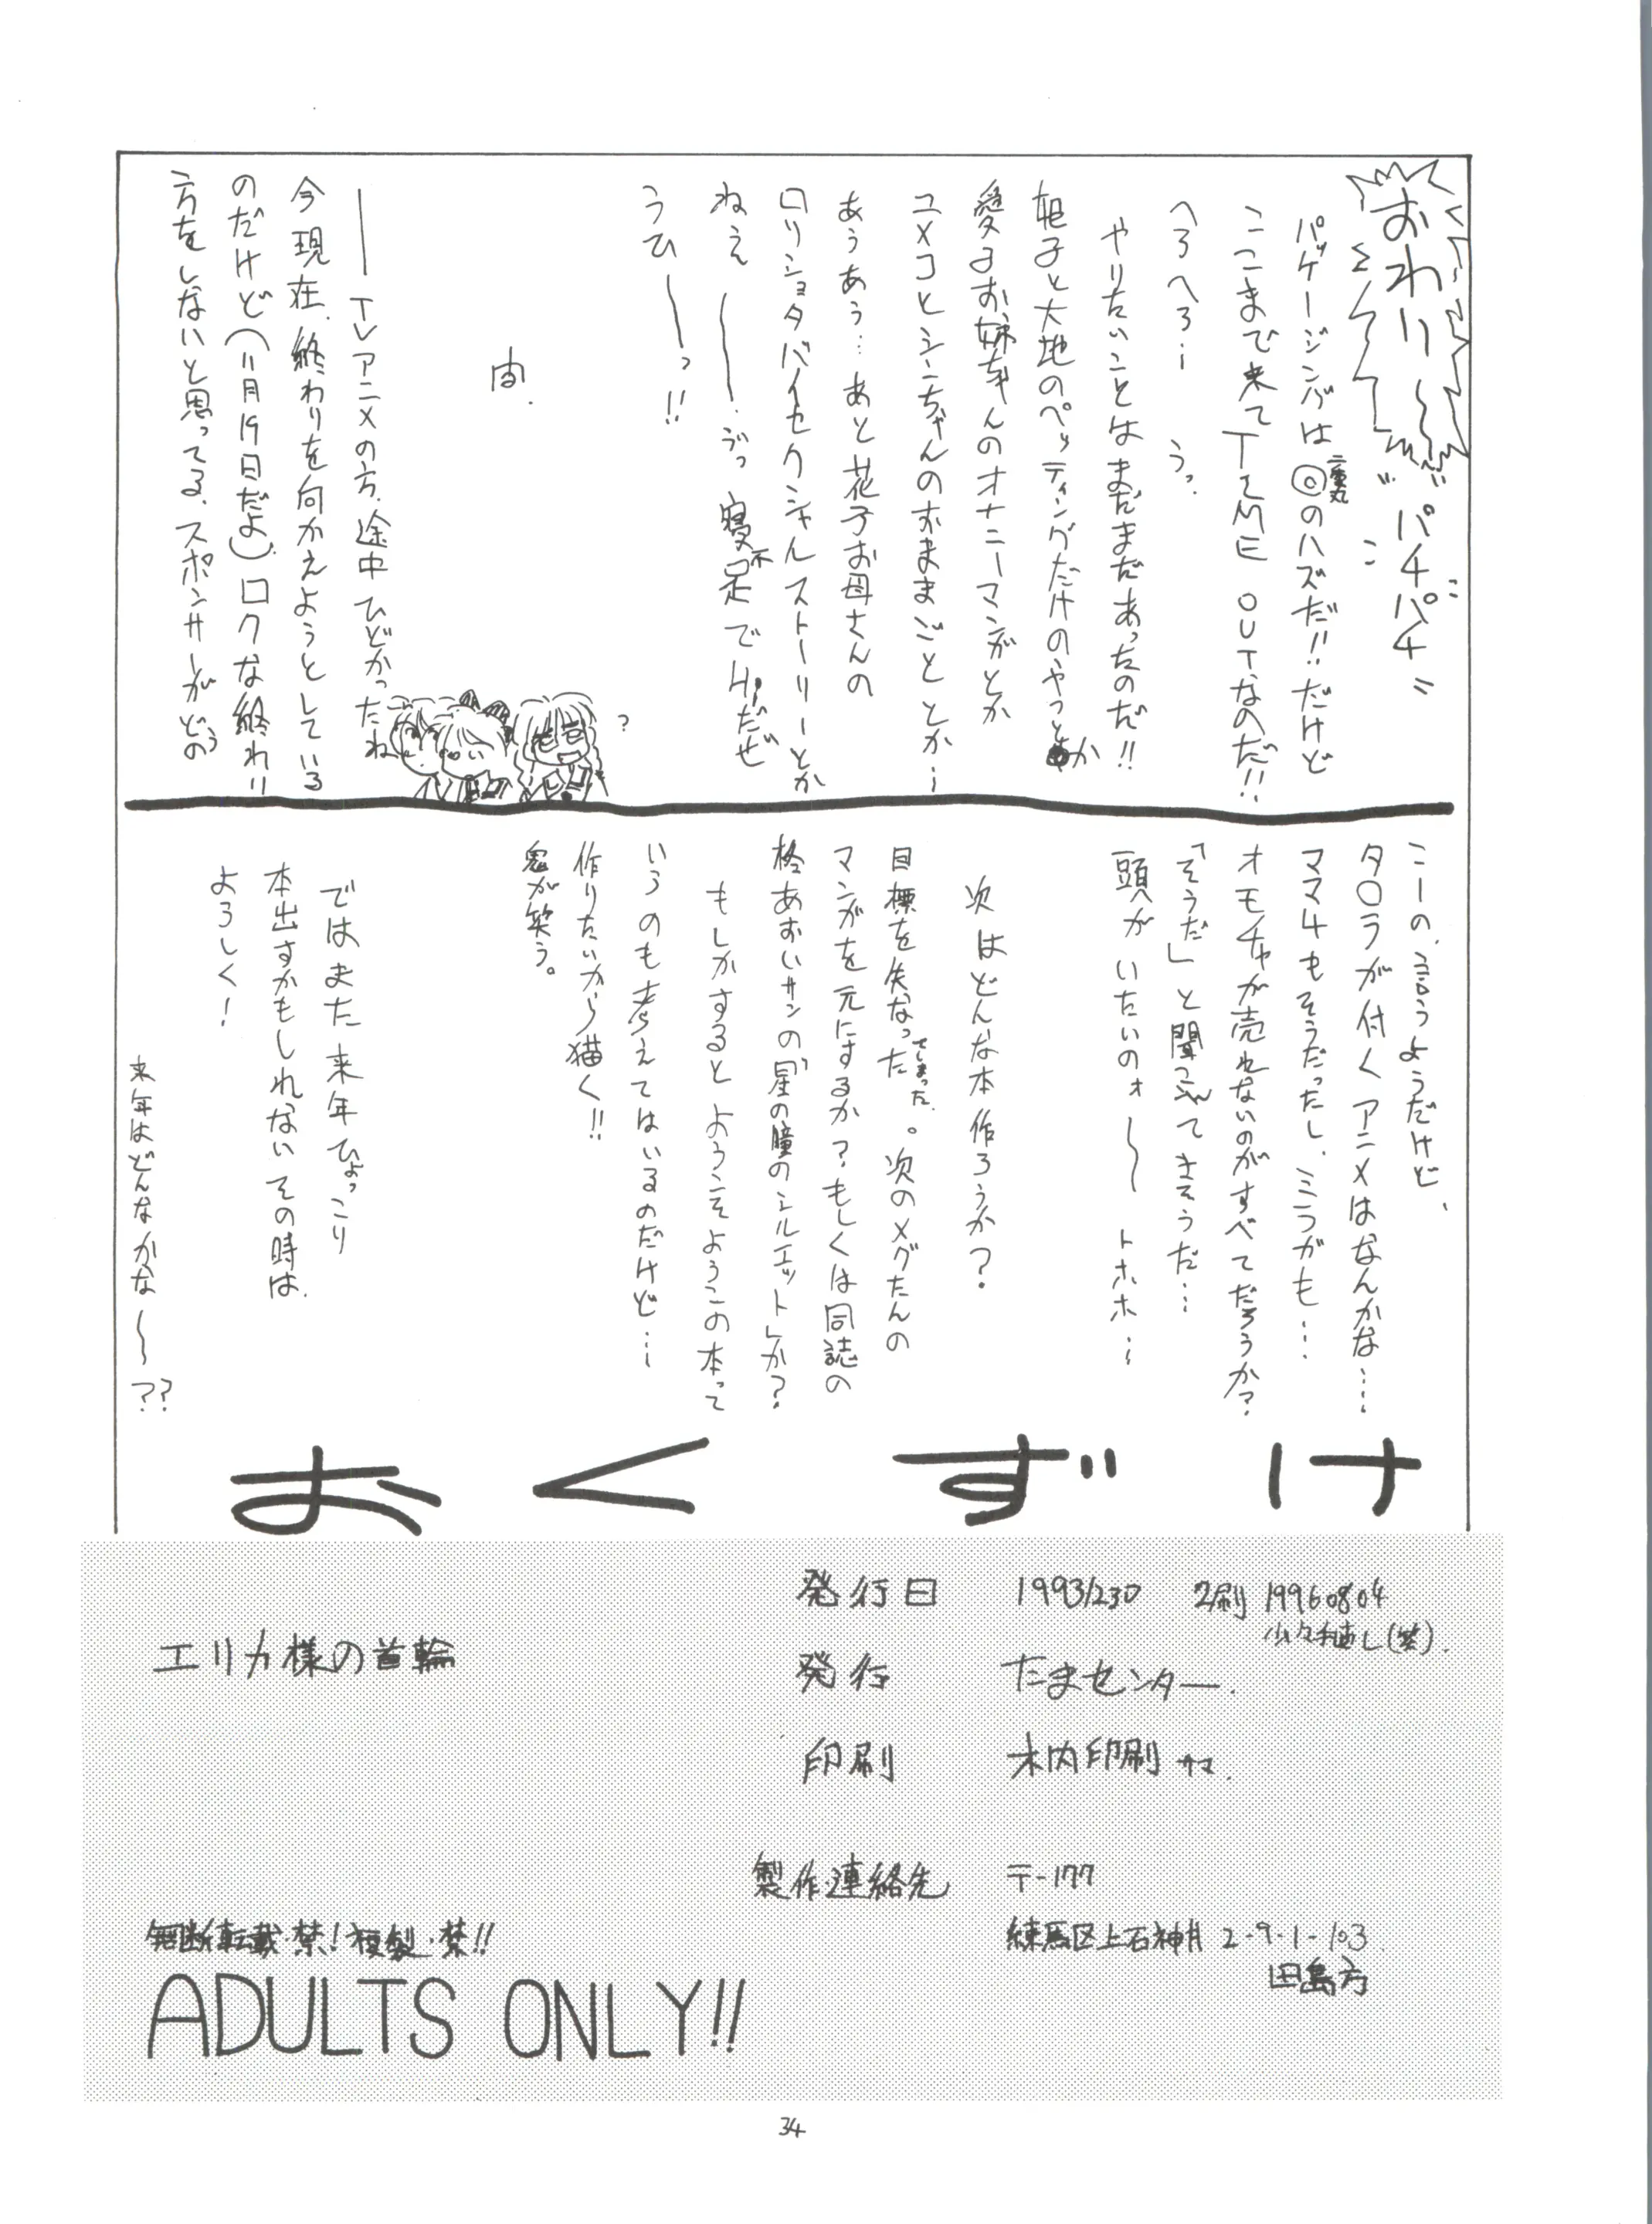 おわり〜 パチパチ
パッケージングは◎のハズだ!!だけど
二重丸
ここまで来てTIME OUTなのだ!!
へろへろ… うっ.
やりたいことはまだまだあったのだ!!
ねえ〜. づっ 寝不足でH!だぜ
うひ〜っ!!
?
間.
―― TVアニメの方、途中ひどかったね
今現在、終わりを向かえようとしている
のだけど(11月19日だよ)、ロクな終わり
方をしないと思ってる、スポンサーがどう
こーの、言うようだけど、
タ○ラが付くアニメはなんかな…
ママ4もそうだったし、ミラがも…
オモチャが売れないのがすべてだろうか?
「そうだ」と聞こえてきそうだ…
頭がいたいのォ〜 トホホ…
次はどんな本作ろうか?
目標を失なった てしまった. 。次のメグたんの
マンガを元にするか?もしくは同誌の
柊あおいサンの「星の瞳のシルエット」か?
もしかすると ようこそようこの本って
いうのも考えてはいるのだけど…
作りたいから描く!!
鬼が笑う。
ではまた来年ひょっこり
本出すかもしれないその時は、
よろしく!
来年はどんなかな〜??
おくずけ
エリカ様の首輪
発行日 19931230 2刷 19960804
少々直し(笑).
発行 たまセンター.
印刷 木内印刷 サマ.
製作・連絡先 〒-177
練馬区上石神井 2-9-1-103
田島方
無断転載・禁!複製・禁!!
ADULTS ONLY!!
34